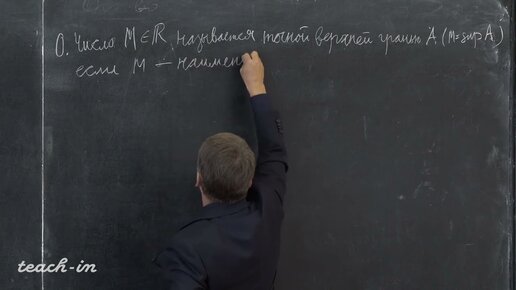 О. Число M∈ℝ называется точной верхней гранью A (M=sup A)
если M – наимен
teach-in